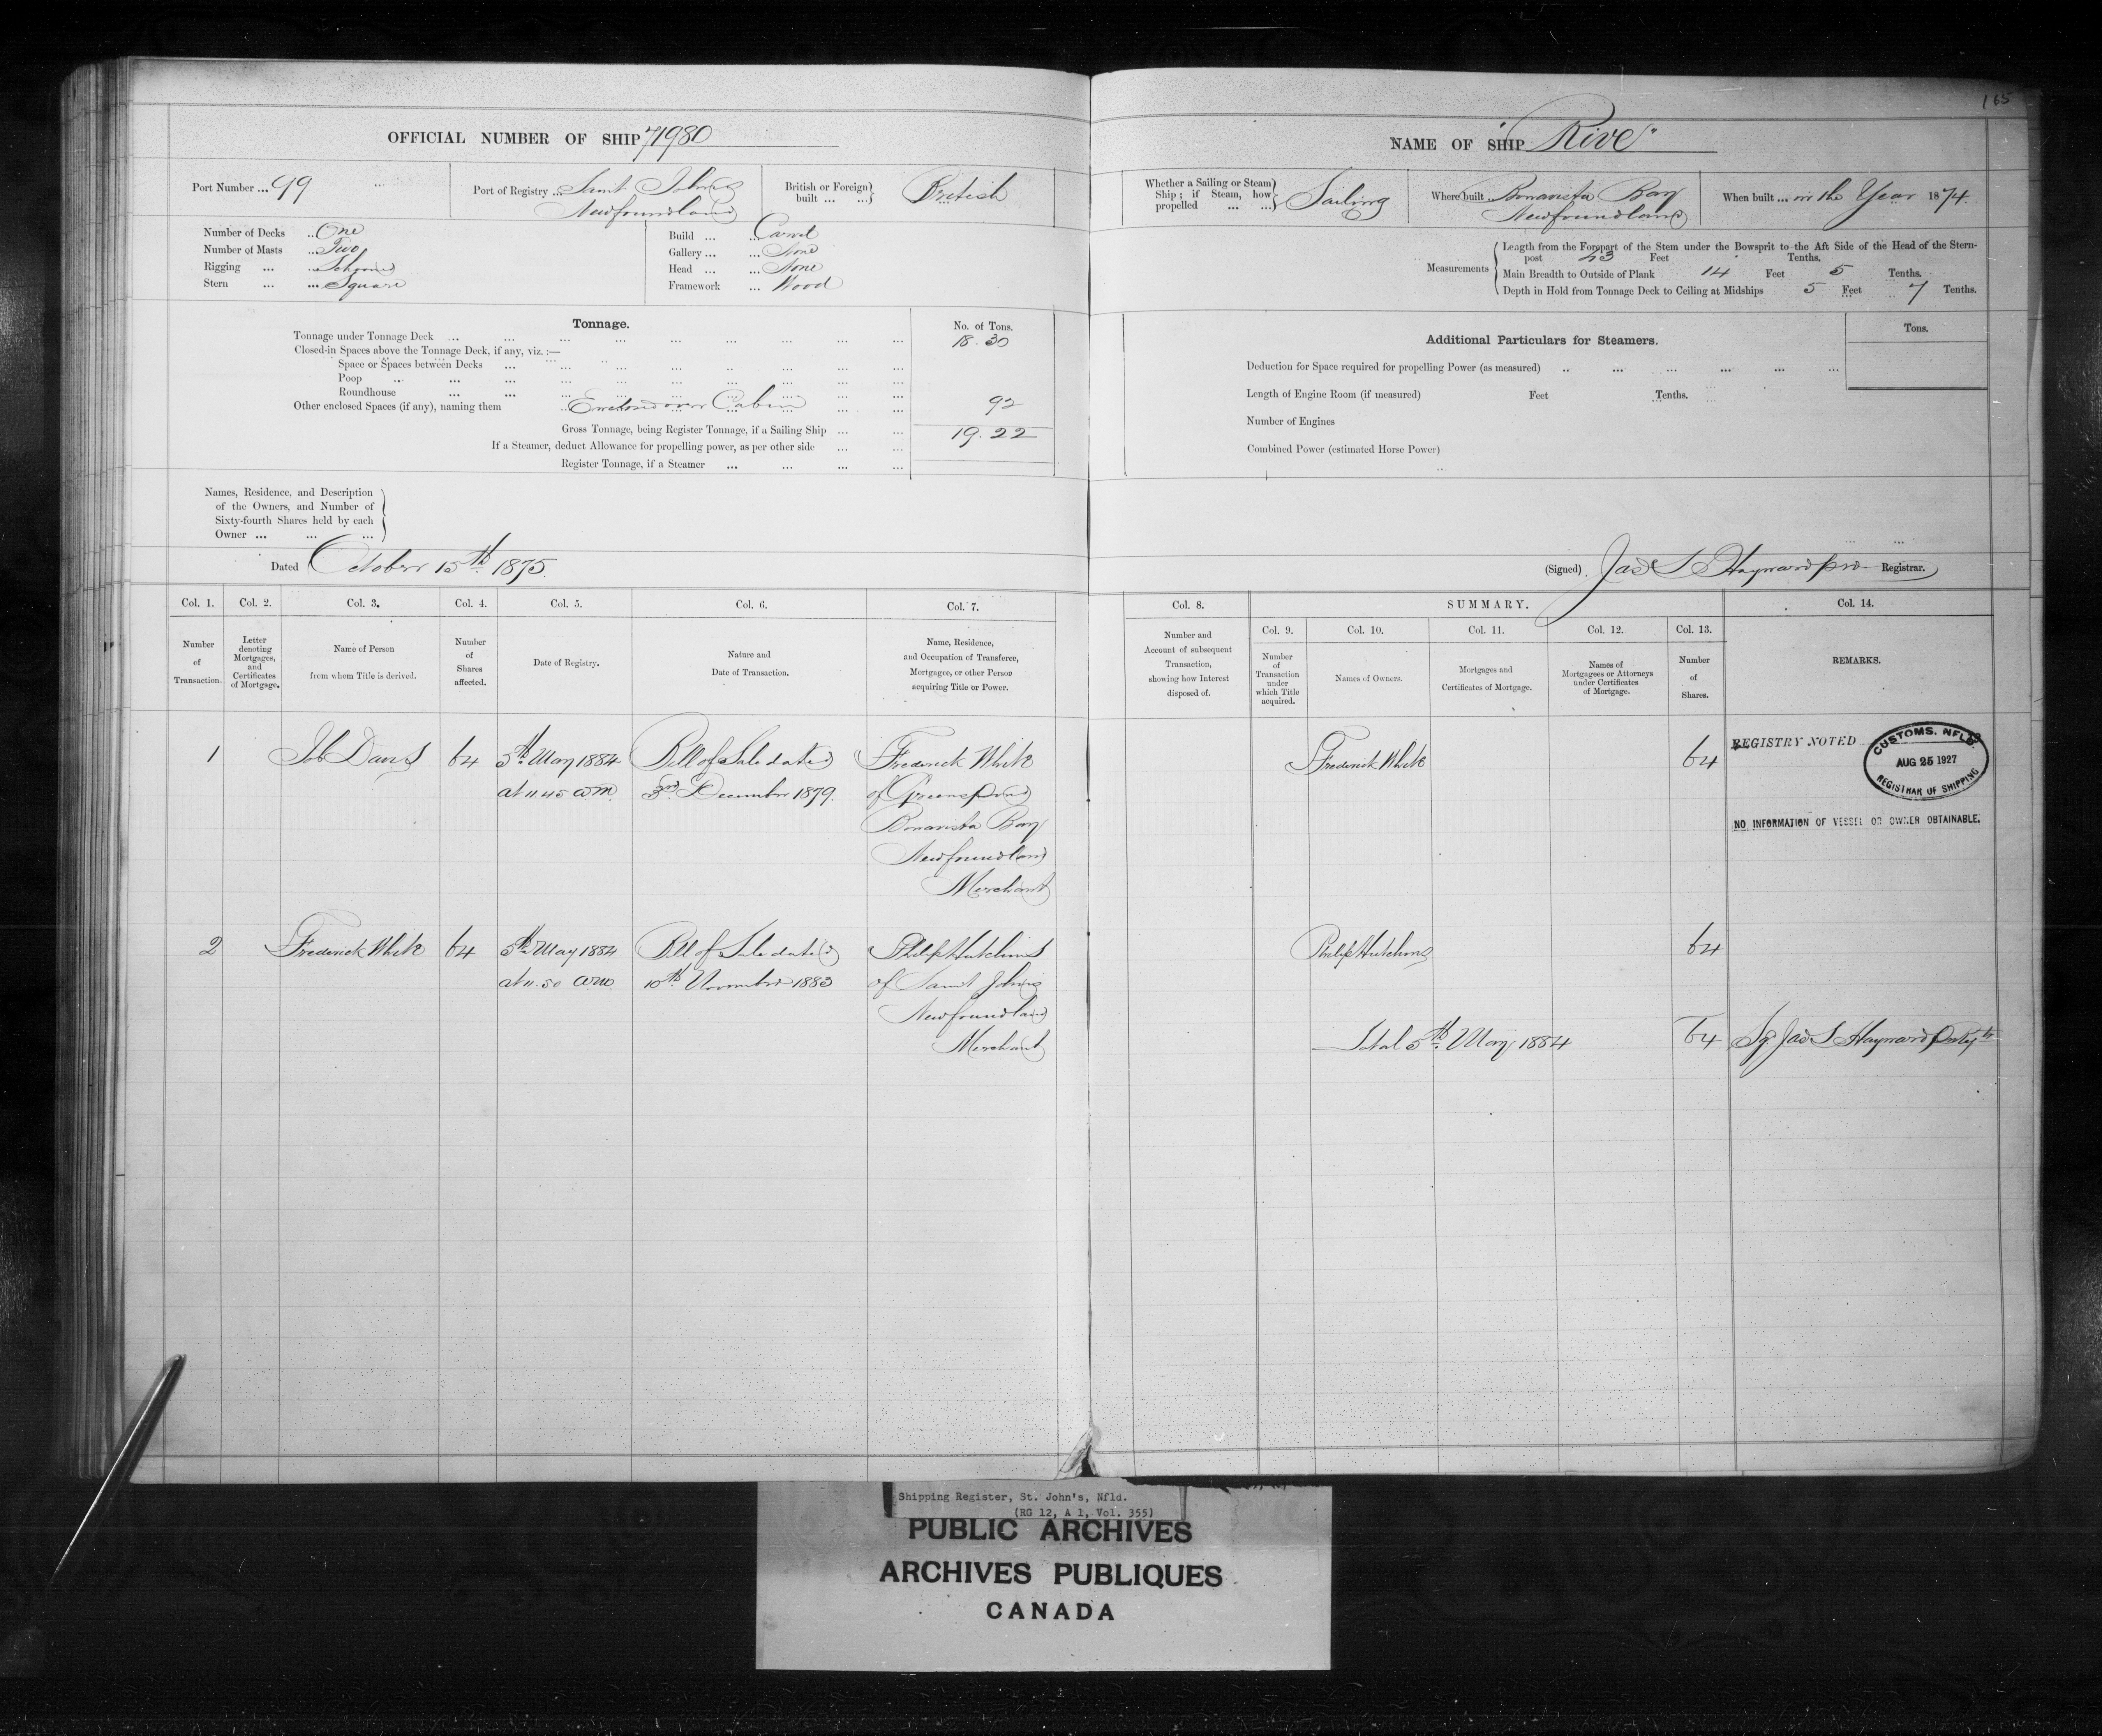 165
OFFICIAL NUMBER OF SHIP 71980
NAME OF SHIP "Rive"
Port Number ... 99
Port of Registry ... Saint Johns
Newfoundland
British or Foreign built ... British
Whether a Sailing or Steam Ship; if Steam, how propelled ... Sailing
Where built Bonavista Bay
Newfoundland
When built ... in the Year 1874.
Number of Decks .. One
Number of Masts .. Two
Rigging ... Schooner
Stern ... Square
Build ... Carvel
Gallery ... None
Head ... None
Framework ... Wood
Measurements
Length from the Forepart of the Stem under the Bowsprit to the Aft Side of the Head of the Stern-
post 43 Feet Tenths.
Main Breadth to Outside of Plank 14 Feet 5 Tenths.
Depth in Hold from Tonnage Deck to Ceiling at Midships 5 Feet 7 Tenths.
Tonnage.
No. of Tons.
Tonnage under Tonnage Deck ... 18.30
Closed-in Spaces above the Tonnage Deck, if any, viz.:—
Space or Spaces between Decks ...
Poop ...
Roundhouse ...
Other enclosed Spaces (if any), naming them Enclosed over Cabin 92
Gross Tonnage, being Register Tonnage, if a Sailing Ship ... 19.22
If a Steamer, deduct Allowance for propelling power, as per other side ...
Register Tonnage, if a Steamer ...
Additional Particulars for Steamers.
Tons.
Deduction for Space required for propelling Power (as measured) ..
Length of Engine Room (if measured) Feet Tenths.
Number of Engines
Combined Power (estimated Horse Power)
Names, Residence, and Description
of the Owners, and Number of
Sixty-fourth Shares held by each
Owner ...
Dated October 15th 1875.
(Signed) Jas S Hayward pro Registrar.
Col. 1. Col. 2. Col. 3. Col. 4. Col. 5. Col. 6. Col. 7.
Number of Transaction.
Letter denoting Mortgages, and Certificates of Mortgage.
Name of Person from whom Title is derived.
Number of Shares affected.
Date of Registry.
Nature and Date of Transaction.
Name, Residence, and Occupation of Transferee, Mortgagee, or other Person acquiring Title or Power.
Col. 8. SUMMARY. Col. 14.
Col. 9. Col. 10. Col. 11. Col. 12. Col. 13.
Number and Account of subsequent Transaction, showing how Interest disposed of.
Number of Transaction under which Title acquired.
Names of Owners.
Mortgages and Certificates of Mortgage.
Names of Mortgagees or Attorneys under Certificates of Mortgage.
Number of Shares.
REMARKS.
1 Job Davis 64 5th May 1884 Bill of Sale dated Frederick White
at 11 45 am. 3rd December 1879. of Greenspond
Bonavista Bay
Newfoundland
Merchant
Frederick White 64
REGISTRY NOTED
CUSTOMS. NFLD.
AUG 25 1927
REGISTRAR OF SHIPPING
NO INFORMATION OF VESSEL OR OWNER OBTAINABLE.
2 Frederick White 64 5th May 1884 Bill of Sale dated Philip Hutchins
at 11.50 am 10th November 1883 of Saint Johns
Newfoundland
Merchant
Philip Hutchins 64
Total 5th May 1884 64 Sg Jas S Hayward
Shipping Register, St. John's, Nfld.
(RG 12, A 1, Vol. 355)
PUBLIC ARCHIVES
ARCHIVES PUBLIQUES
CANADA